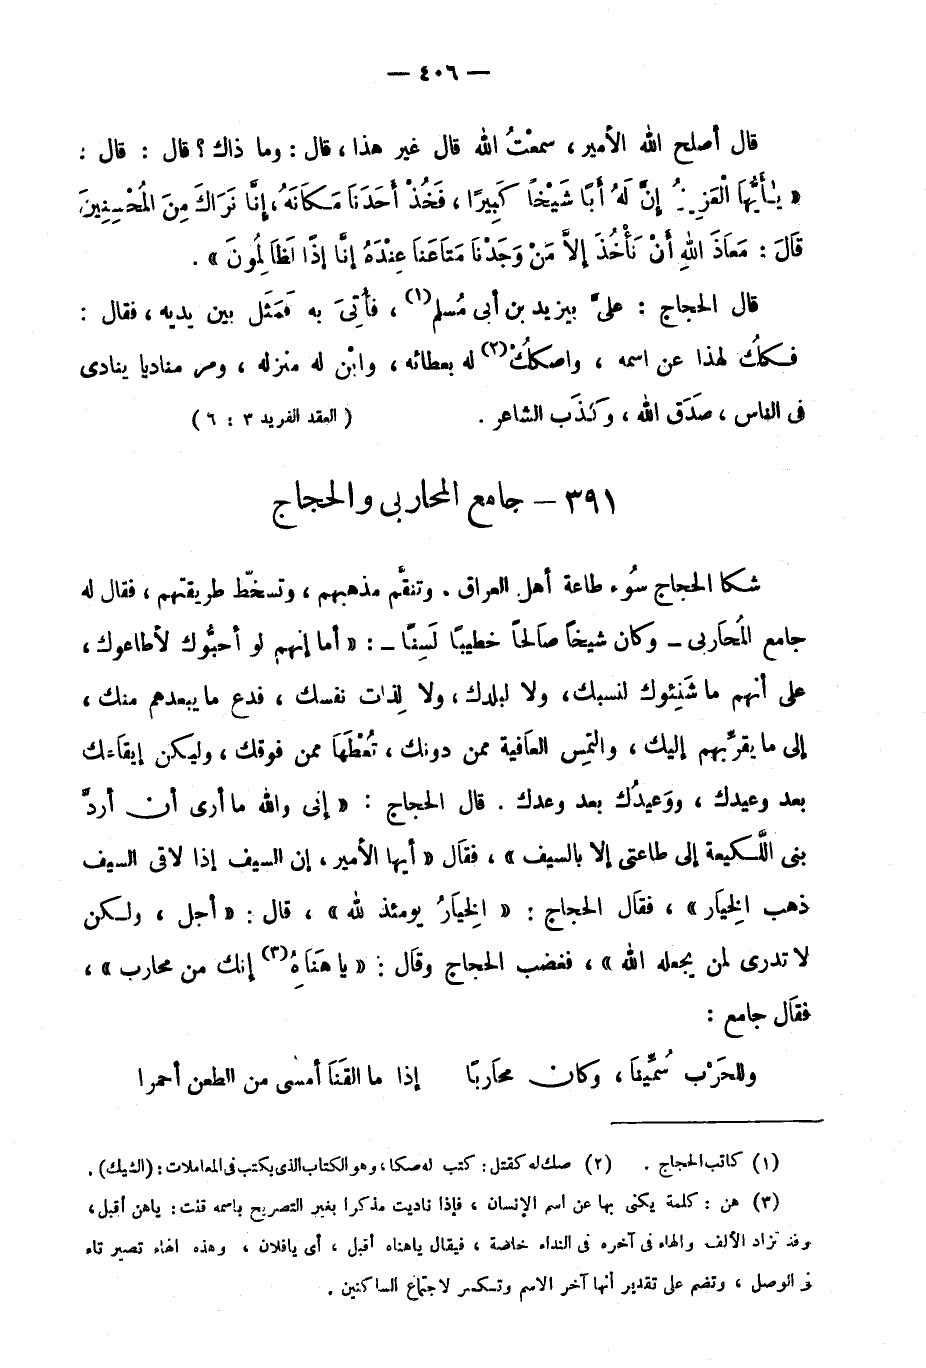 — ٤٠٦ —
قال أصلح الله الأمير ، سمعْتُ الله قال غير هذا ، قال : وما ذاك ؟ قال : قال :
« يٰأَيُّهَا الْعَزِيزُ إِنَّ لَهُ أَبًا شَيْخًا كَبِيرًا ، فَخُذْ أَحَدَنَا مَكَانَهُ ، إِنَّا نَرَاكَ مِنَ الْمُحْسِنِينَ
قَالَ : مَعَاذَ اللهِ أَنْ نَأْخُذَ إِلاَّ مَنْ وَجَدْنَا مَتَاعَنَا عِنْدَهُ إِنَّا إِذًا لَظَالِمُونَ » .
قال الحجاج : علىَّ بيزيد بن أبى مُسلم(١) ، فأُتِىَ به فَمَثَل بين يديه ، فقال :
فكلُك لهذا عن اسمه ، واصكلُكْ(٢) له بعطائه ، وابْن له منْزله ، ومر مناديا ينادى
فى الناس ، صَدَق الله ، وكَذَب الشاعر . ( العقد الفريد ٣ : ٦ )
٣٩١ – جامع المحاربى والحجاج
شكا الحجاج سُوء طاعة أهل العراق . وتنقَّم مذهبهم ، وتسخّط طريقتهم ، فقال له
جامع المُحَاربى – وكان شيخاً صالحاً خطيبًا لَسِنًا – : « أما إنهم لو أحبُّوك لأطاعوك ،
على أنهم ما شَنِئوك لنسبك ، ولا لبلدك ، ولا لِذات نفسك ، فدع ما يبعدهم منك ،
إلى ما يقرِّبهم إليك ، والتمِس العافية ممن دونك ، تُعْطَهَا ممن فوقك ، وليكن إيقاعك
بعد وعيدك ، ووَعيدُك بعد وعدك . قال الحجاج : « إنى والله ما أرى أن أردَّ
بنى اللَّكيعة إلى طاعتى إلا بالسيف » ، فقال « أيها الأمير ، إن السيف إذا لاقى السيف
ذهب الخِيَار » ، فقال الحجاج : « الخِيَارُ يومئذ لله » ، قال : « أجل ، ولكن
لا تدرى لمن يجعله الله » ، فغضب الحجاج وقال : « يا هَنَاهُِ(٣) إنك من محارب » ،
فقال جامع :
وللحَرْب سُمِّينَا ، وكان محاربًا إذا ما القَنَا أمسى من الطعن أحمرا
(١) كاتب الحجاج . (٢) صك له كقتل : كتب له صكا ، وهو الكتاب الذى يكتب فى المعاملات : (الشيك) .
(٣) هن : كلمة يكنى بها عن اسم الإنسان ، فإذا ناديت مذكرا بغير التصريح باسمه قلت : ياهن أقبل ،
وقد تزاد الألف والهاء فى آخره فى النداء خاصة ، فيقال ياهناه أقبل ، أى يافلان ، وهذه الهاء تصير تاء
فى الوصل ، وتضم على تقدير أنها آخر الاسم وتكسر لاجتماع الساكنين .